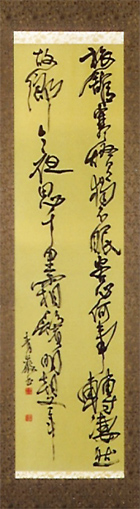 旅館寒燈獨不眠客心何事轉凄然
故鄉今夜思千里霜鬢明朝又一年